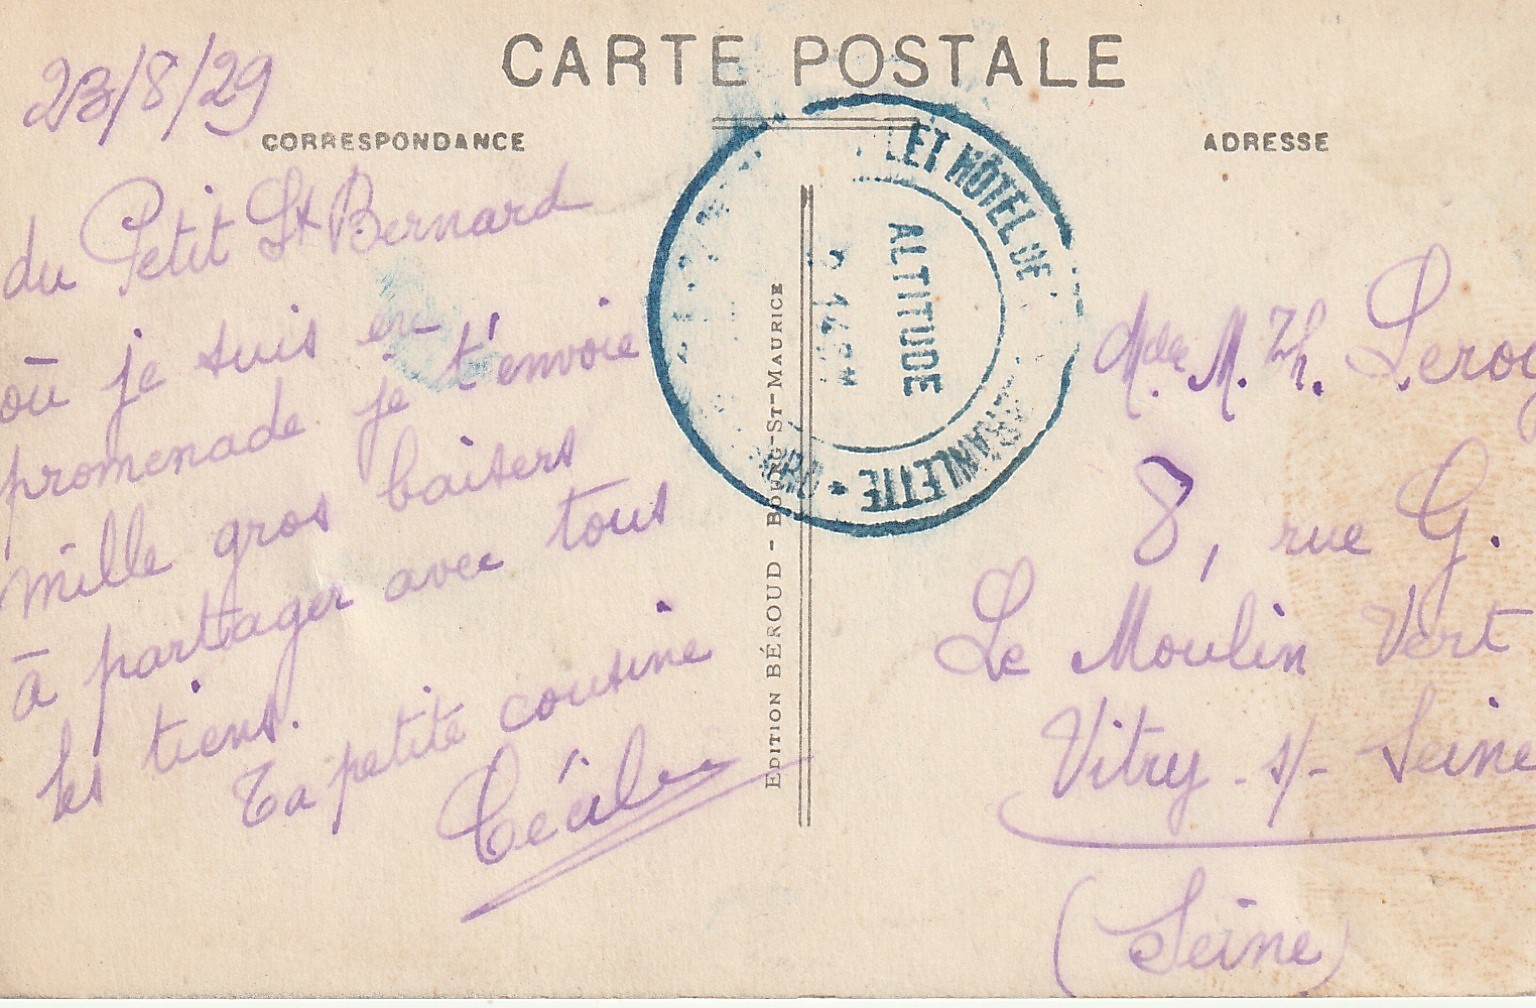 CARTE POSTALE
23/8/29
CORRESPONDANCE
ADRESSE
du Petit St Bernard
où je suis en
promenade je t'envoie
mille gros baisers
à partager avec tous
les tiens.
Ta petite cousine
Cécile
EDITION BÉROUD - BOURG-ST-MAURICE
ET HÔTEL DE
ALTITUDE
Mlle M. Th. Leroy
8, rue G.
Le Moulin Vert
Vitry - s/- Seine
(Seine)